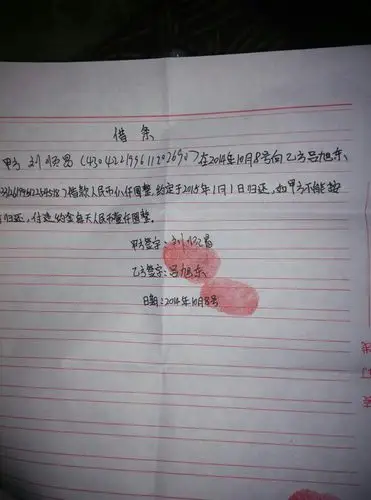 借条
甲方刘恒昌(4304221996112026907)在2014年10月8号向乙方吕旭东
借款人民币仟圆整,约定于2015年1月1日归还,如甲方不能按
归还,付违约金每天人民币壹仟圆整。
甲方签字:刘恒昌
乙方签字:吕旭东
日期:2014年10月8号